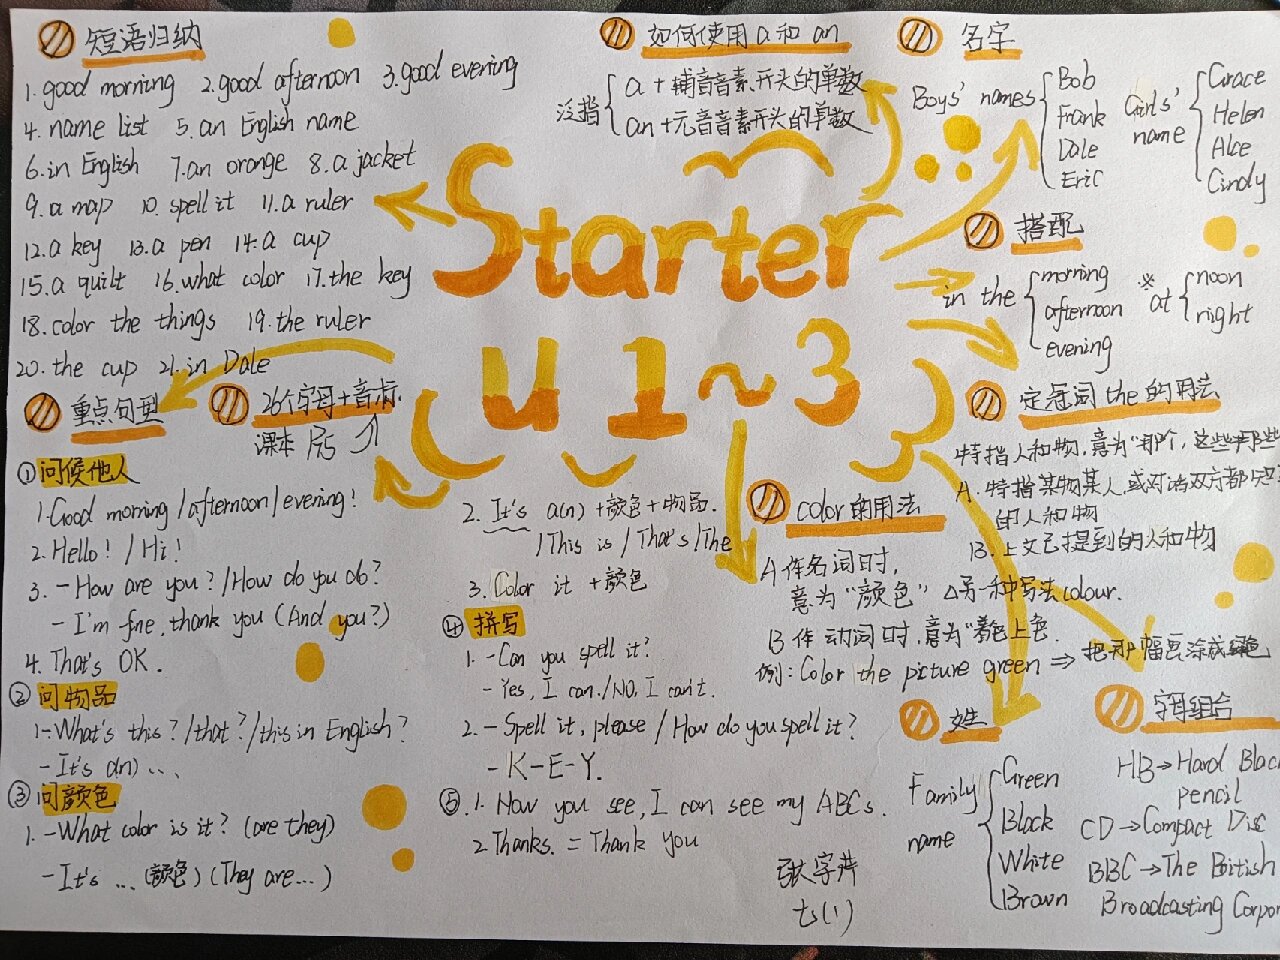 短语归纳
1. good morning 2. good afternoon 3. good evening
4. name list 5. an English name
6. in English 7. an orange 8. a jacket
9. a map 10. spell it 11. a ruler
12. a key 13. a pen 14. a cup
15. a quilt 16. what color 17. the key
18. color the things 19. the ruler
20. the cup 21. in Dale
如何使用 a 和 an
泛指
a + 辅音音素开头的单数
an + 元音音素开头的单数
名字
Boys' names
Bob
Frank
Dale
Eric
Girls' name
Grace
Helen
Alce
Cindy
Starter
u 1~3
搭配
in the
morning
afternoon
evening
※ at
noon
night
重点句型
①问候他人
1. Good morning / afternoon / evening!
2. Hello! / Hi!
3. - How are you? / How do you do?
- I'm fine, thank you (And you?)
4. That's OK.
②问物品
1. - What's this? / that? / this in English?
- It's a(n) ...
③问颜色
1. - What color is it? (are they)
- It's ... (颜色) (They are ...)
26个字母+音标
课本
2. It's a(n) + 颜色 + 物品.
/ This is / That's / The
3. Color it + 颜色
④拼写
1. - Can you spell it?
- Yes, I can. / NO, I can't.
2. - Spell it, please / How do you spell it?
- K-E-Y.
⑤ 1. Now you see, I can see my ABCs.
2. Thanks. = Thank you
color的用法
A 作名词时,
意为“颜色” △另一种写法colour.
B 作动词时, 意为“着色上色.
例: Color the picture green ⇒ 把那幅画涂成绿色
定冠词 the 的用法
特指人和物, 意为“那个, 这些那些
A. 特指某物某人, 或对话双方都知
的人和物
B. 上文已提到的人和物
姓
Family name
Green
Black
White
Brown
字母组合
HB → Hard Black
pencil
CD → Compact Disc
BBC → The British
Broadcasting Corpor
张字
七(1)